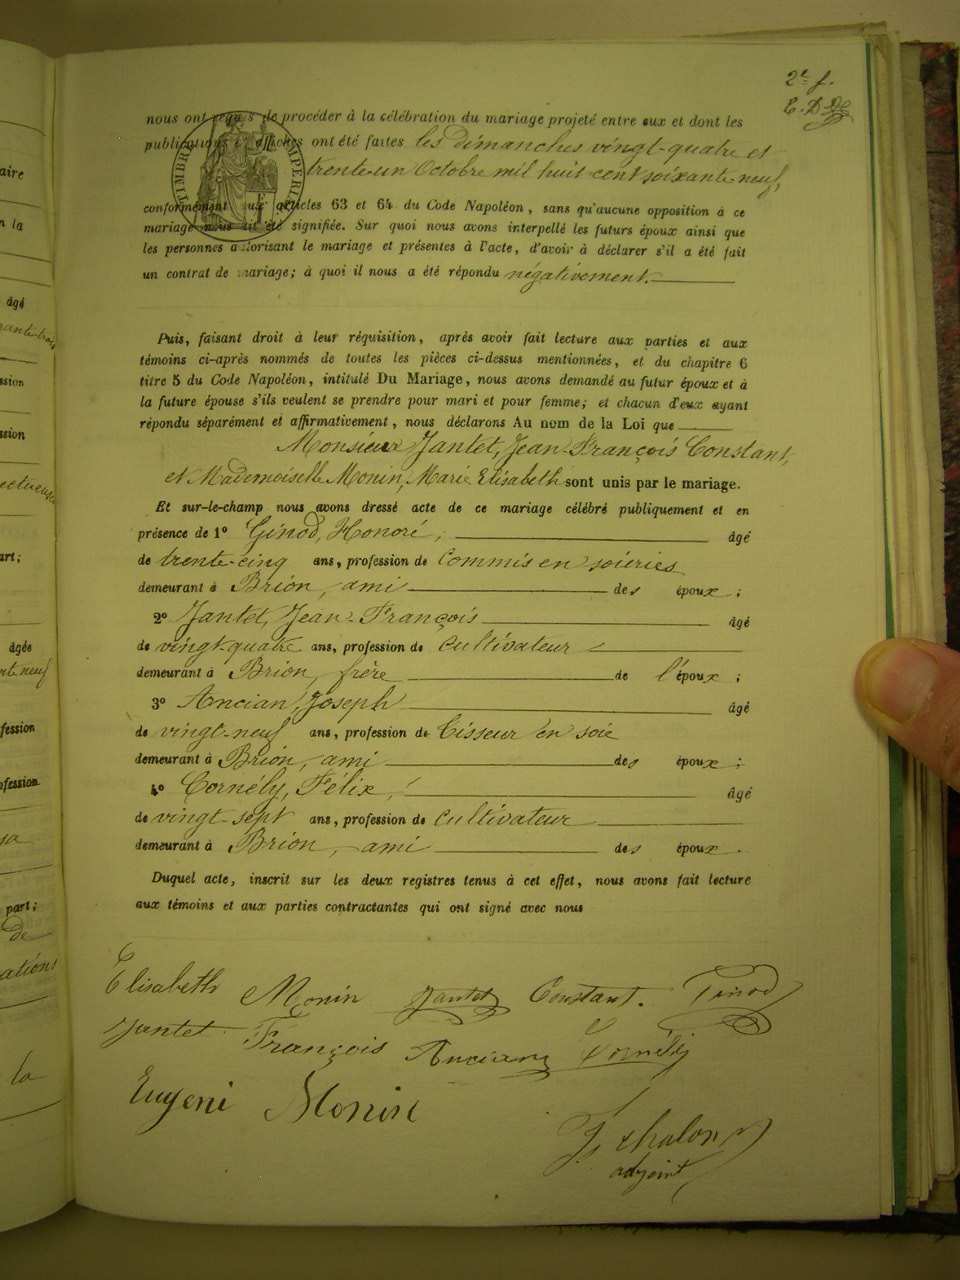 2e f.
E. D
nous ont requis de procéder à la célébration du mariage projeté entre eux et dont les
publications et affiches ont été faites les dimanches vingt-quatre et
trente-un Octobre mil huit cent soixante-neuf,
conformément aux articles 63 et 64 du Code Napoléon, sans qu'aucune opposition à ce
mariage nous ait été signifiée. Sur quoi nous avons interpellé les futurs époux ainsi que
les personnes autorisant le mariage et présentes à l'acte, d'avoir à déclarer s'il a été fait
un contrat de mariage; à quoi il nous a été répondu négativement.
Puis, faisant droit à leur réquisition, après avoir fait lecture aux parties et aux
témoins ci-après nommés de toutes les pièces ci-dessus mentionnées, et du chapitre 6
titre 5 du Code Napoléon, intitulé Du Mariage, nous avons demandé au futur époux et à
la future épouse s'ils veulent se prendre pour mari et pour femme; et chacun d'eux ayant
répondu séparément et affirmativement, nous déclarons Au nom de la Loi que
Monsieur Jantet, Jean-François Constant,
et Mademoiselle Monin, Marie Elisabeth sont unis par le mariage.
Et sur-le-champ nous avons dressé acte de ce mariage célébré publiquement et en
présence de 1° Ginod, Honoré, âgé
de trente-cinq ans, profession de Commis en soieries
demeurant à Brion, ami des époux;
2° Jantet, Jean-François âgé
de vingt-quatre ans, profession de cultivateur
demeurant à Brion, frère de l'époux;
3° Ancian, Joseph âgé
de vingt-neuf ans, profession de Tisseur en soie
demeurant à Brion, ami des époux;
4° Cornély, Félix, âgé
de vingt-sept ans, profession de cultivateur
demeurant à Brion, ami des époux.
Duquel acte, inscrit sur les deux registres tenus à cet effet, nous avons fait lecture
aux témoins et aux parties contractantes qui ont signé avec nous
Elisabeth Monin Jantet Constant. Ginod
Jantet François Ancian Cornély
Eugeni Monin
F. Chalon
adjoint